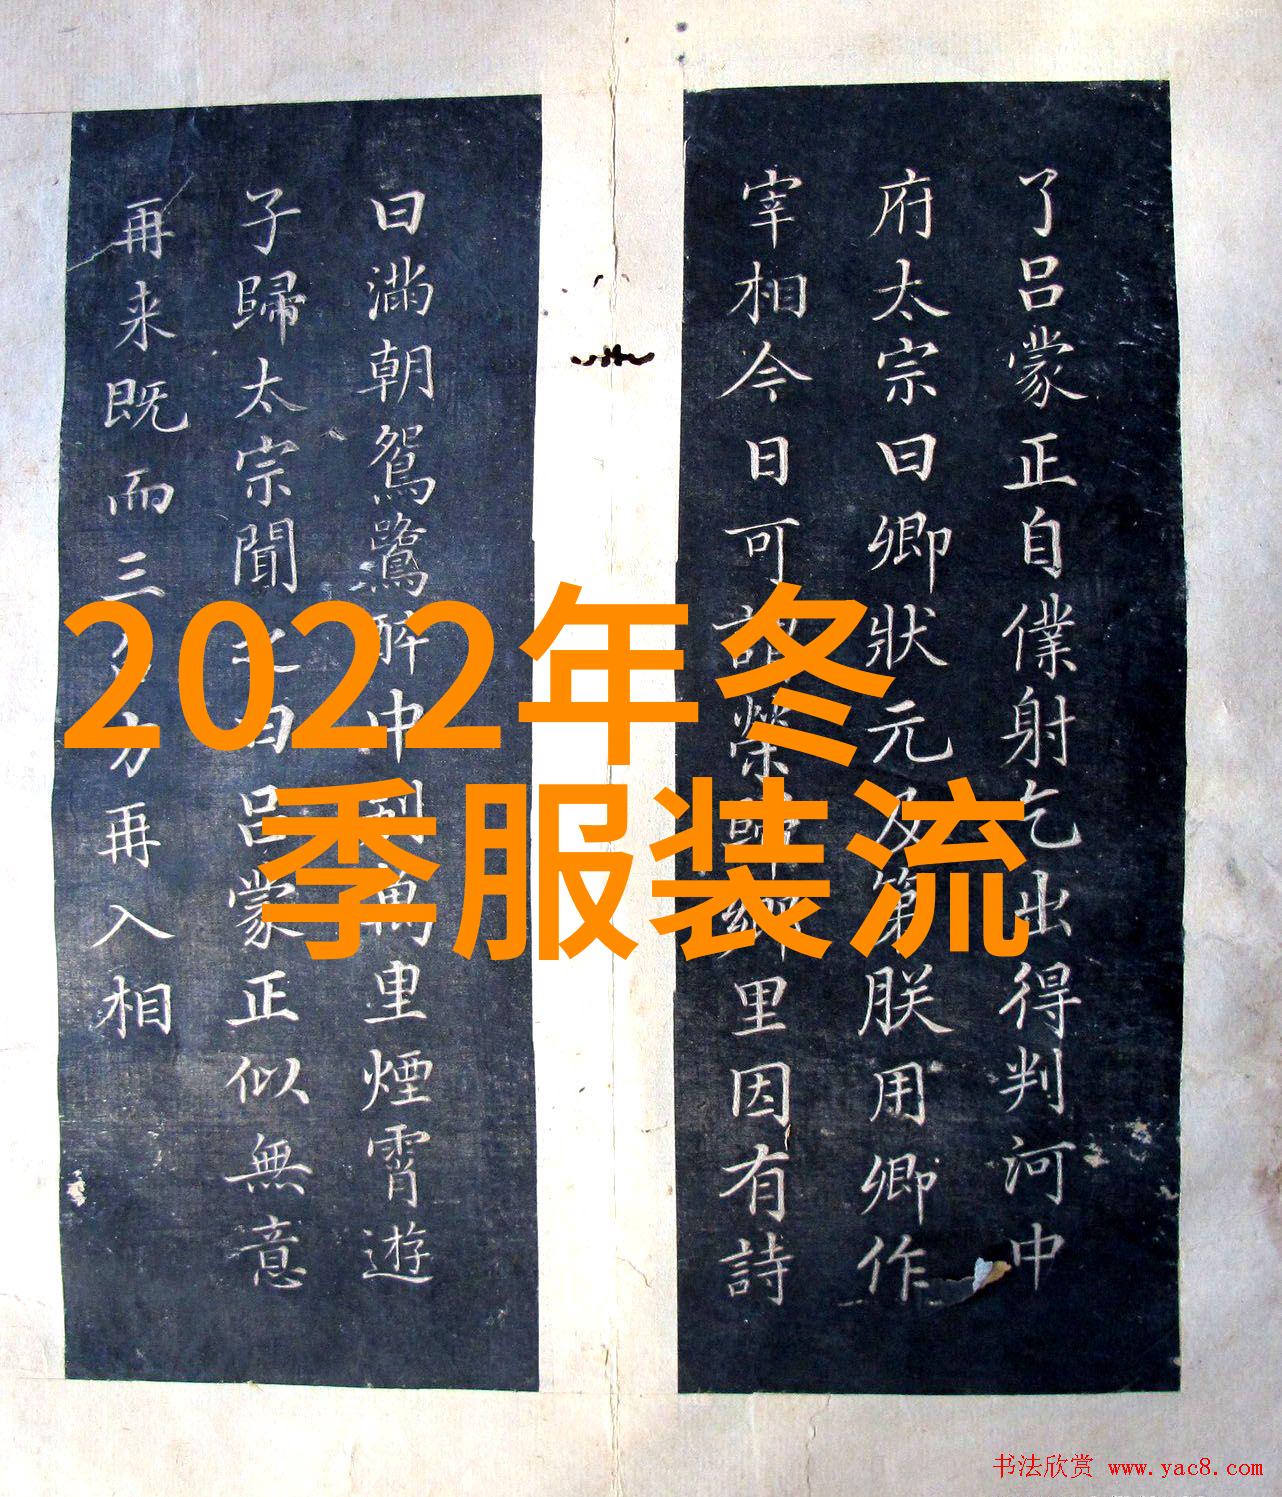 了呂蒙正自僕射乞出得判河中
府太宗曰卿狀元及第朕用卿作
宰相今日可謂榮歸鄉里因有詩
曰滿朝鴛鷺醉中別萬里煙霄遊
子歸太宗聞之曰呂蒙正似無意
再来既而三方再入相
2022年冬
季服装流
书法欣赏 www.yac8.com